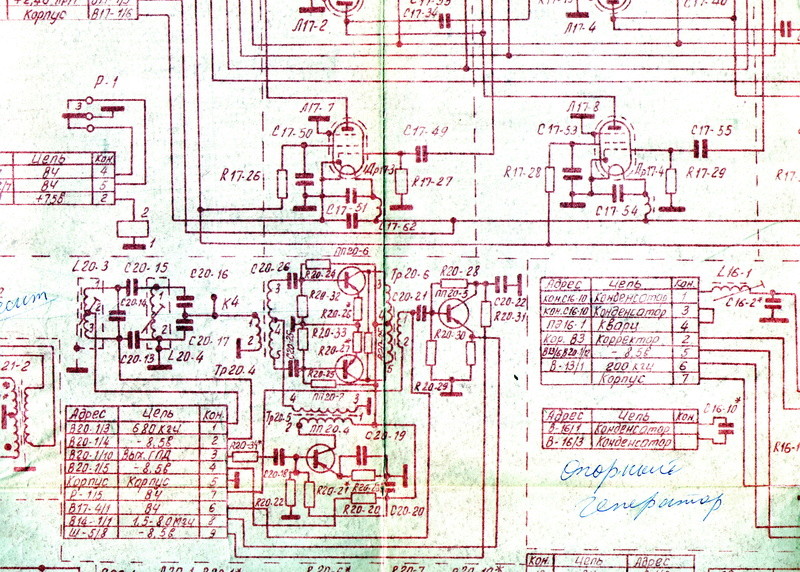 Корпус В17-1/6
Л17-2
С17-34
Л17-4
Р-1
3
Л17-7
С17-50
С17-49
Л17-8
С17-53
С17-55
Цепь Кон.
ВЧ 4
ВЧ 5
+75в 2
R17-26
Др17-3
R17-27
R17-28
Др17-4
R17-29
С17-51
С17-54
С17-62
2
1
L20-3
С20-15
С20-16
С20-26
ПП20-6
R20-24
Тр20-6
R20-28
R20-32
С20-21
ПП20-5
С20-22
R20-31
С20-14
К4
R20-26
R20-33
R20-27
R20-30
С20-17
С20-13
L20-4
Тр20-4
R20-25
ПП20-7
R20-29
Адрес Цепь Кон.
кон.С16-10 Конденсатор 1
кон.С16-10 Конденсатор 3
ПЭ16-1 Кварц 4
Кор. В3 Корректор 2
- 8,5в 5
В-13/1 200 кгц 6
Корпус 7
L16-1
С16-2*
21-2
Адрес Цепь Кон.
В20-1/3 680 кгц 1
В20-1/4 - 8,5в 2
В20-2/10 Вых. ГПД 3
В20-2/5 - 8,5в 4
Корпус Корпус 5
Р-1/5 ВЧ 7
В17-4/1 ВЧ 6
В14-1/1 1,5-8,0 Мгц 8
Ш-5/8 - 8,5в 9
Тр20-5
ПП20-4
С20-19
R20-34*
С20-18
R20-22
R20-21
R20-20
С20-20
Адрес Цепь Кон.
В-16/1 Конденсатор
В-16/3 Конденсатор
С16-10*
R16-1
Опорный
генератор
Кон. Цепь Адрес